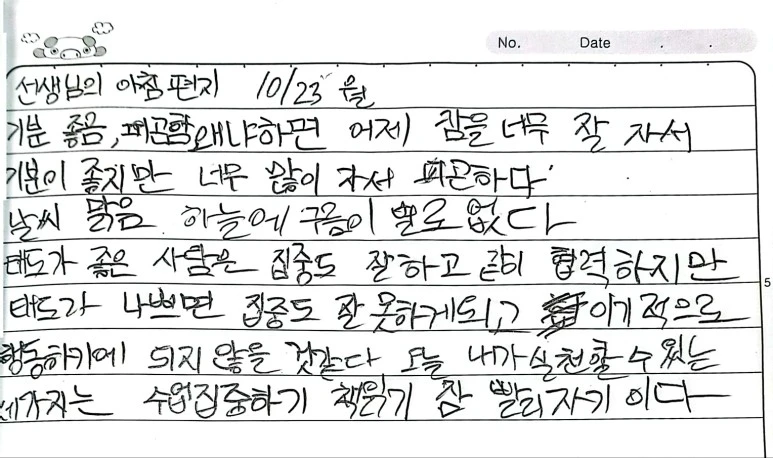 No. Date . .
선생님의 아침 편지 10/23 월
기분 좋음, 피곤함 왜냐하면 어제 잠을 너무 잘 자서
기분이 좋지만 너무 많이 자서 피곤하다
날씨 맑음 하늘에 구름이 별로 없다
태도가 좋은 사람은 집중도 잘하고 같이 협력하지만
태도가 나쁘면 집중도 잘 못하게되고 이기적으로
행동하기에 되지 않을 것같다 오늘 내가 실천할 수 있는
세가지는 수업집중하기 책읽기 잠 빨리자기 이다
5